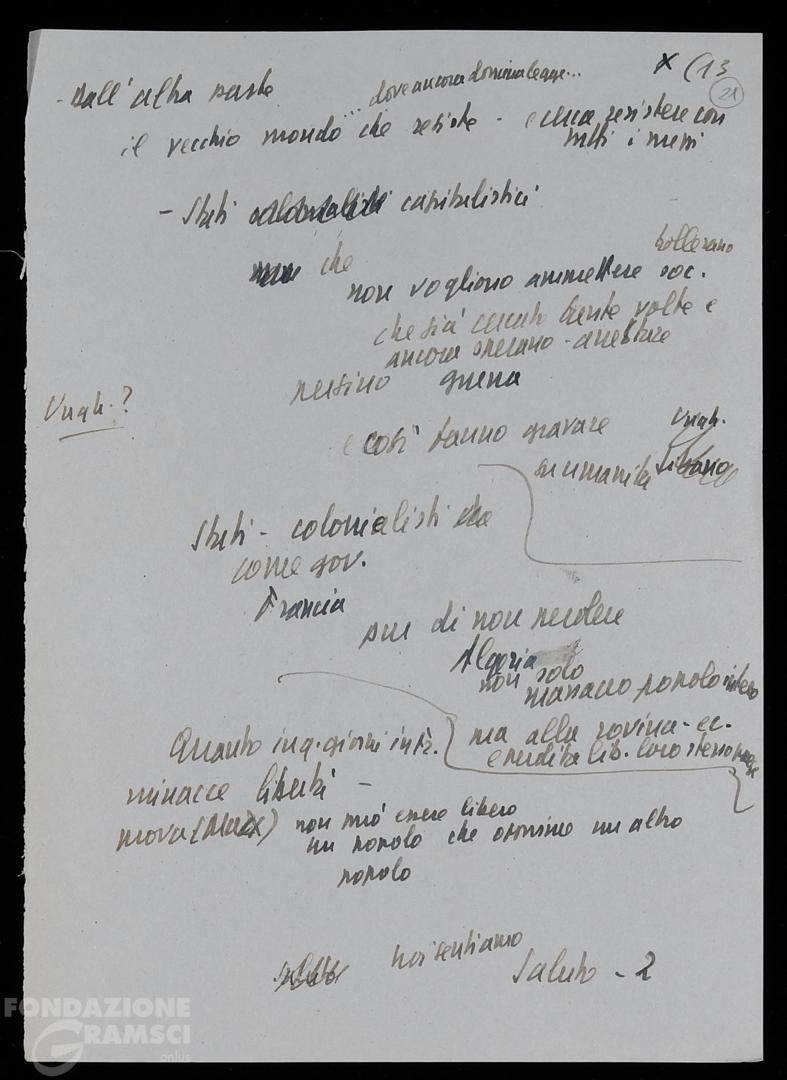 x (13
21
- Dall'altra parte ... dove ancora domina legge...
il vecchio mondo che resiste - e cerca resistere con
tutti i mezzi
- Stati capitalistici
che tollerano
non vogliono ammettere soc.
che già cercato tante volte e
ancora sperano - arrestare
persino guerra
Ungh.?
e così fanno gravare Ungh.
su umanità Libano
Stati - colonialisti che
come gov.
Francia
pur di non perdere
Algeria
non solo
massacro popolo intero
ma alla rovina - ec.
e perdita lib. loro stesso paese
Quanto in q. giorni in Fr.
minacce libertà -
prova (Marx) non può essere libero
un popolo che opprime un altro
popolo
noi sentiamo
Saluto - 2
FONDAZIONE
GRAMSCI
onlus